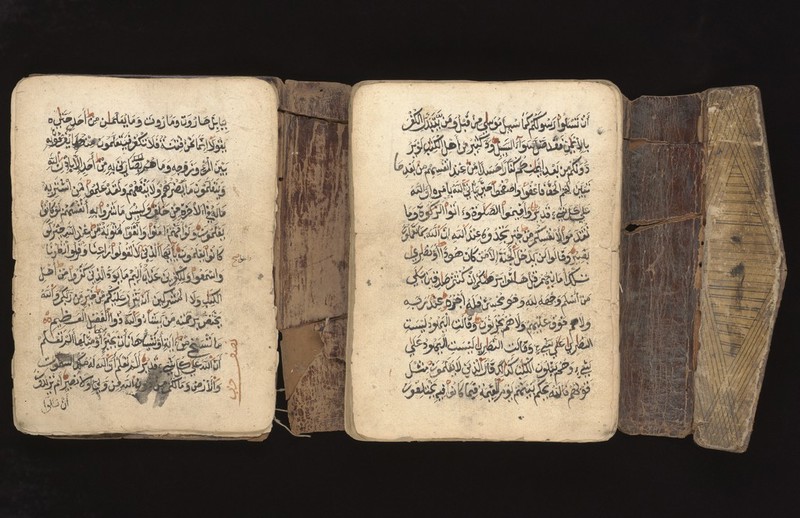 بِبَابِلَ هَارُوتَ وَمَارُوتَ وَمَا يُعَلِّمَانِ مِنْ أَحَدٍ حَتَّى
يَقُولَا إِنَّمَا نَحْنُ فِتْنَةٌ فَلَا تَكْفُرْ فَيَتَعَلَّمُونَ مِنْهُمَا مَا يُفَرِّقُونَ بِهِ
بَيْنَ الْمَرْءِ وَزَوْجِهِ وَمَا هُمْ بِضَارِّينَ بِهِ مِنْ أَحَدٍ إِلَّا بِإِذْنِ اللَّهِ
وَيَتَعَلَّمُونَ مَا يَضُرُّهُمْ وَلَا يَنْفَعُهُمْ وَلَقَدْ عَلِمُوا لَمَنِ اشْتَرَيهُ
مَا لَهُ فِي الْآخِرَةِ مِنْ خَلَاقٍ وَلَبِئْسَ مَا شَرَوْا بِهِ أَنْفُسَهُمْ لَوْ كَانُوا
يَعْلَمُونَ وَلَوْ أَنَّهُمْ آمَنُوا وَاتَّقَوْا لَمَثُوبَةٌ مِنْ عِنْدِ اللَّهِ خَيْرٌ لَوْ
كَانُوا يَعْلَمُونَ يَا أَيُّهَا الَّذِينَ آمَنُوا لَا تَقُولُوا رَاعِنَا وَقُولُوا انْظُرْنَا
وَاسْمَعُوا وَلِلْكَافِرِينَ عَذَابٌ أَلِيمٌ مَا يَوَدُّ الَّذِينَ كَفَرُوا مِنْ أَهْلِ
الْكِتَبِ وَلَا الْمُشْرِكِينَ أَنْ يُنَزَّلَ عَلَيْكُمْ مِنْ خَيْرٍ مِنْ رَبِّكُمْ وَاللَّهُ
يَخْتَصُّ بِرَحْمَتِهِ مَنْ يَشَاءُ وَاللَّهُ ذُو الْفَضْلِ الْعَظِيمِ
مَا نَنْسَخْ مِنْ آيَةٍ أَوْ نُنْسِهَا نَأْتِ بِخَيْرٍ مِنْهَا أَوْ مِثْلِهَا أَلَمْ تَعْلَمْ
أَنَّ اللَّهَ عَلَى كُلِّ شَيْءٍ قَدِيرٌ أَلَمْ تَعْلَمْ أَنَّ اللَّهَ لَهُ مُلْكُ السَّمَوَتِ
وَالْأَرْضِ وَمَا لَكُمْ مِنْ دُونِ اللَّهِ مِنْ وَلِيٍّ وَلَا نَصِيرٍ أَمْ تُرِيدُونَ
أن تسئلوا
نصف حزب
أَنْ تَسْئَلُوا رَسُولَكُمْ كَمَا سُئِلَ مُوسَى مِنْ قَبْلُ وَمَنْ يَتَبَدَّلِ الْكُفْرَ
بِالْإِيمَانِ فَقَدْ ضَلَّ سَوَاءَ السَّبِيلِ وَدَّ كَثِيرٌ مِنْ أَهْلِ الْكِتَبِ لَوْ يَرُ
دُّونَكُمْ مِنْ بَعْدِ إِيمَانِكُمْ كُفَّارًا حَسَدًا مِنْ عِنْدِ أَنْفُسِهِمْ مِنْ بَعْدِ مَا
تَبَيَّنَ لَهُمُ الْحَقُّ فَاعْفُوا وَاصْفَحُوا حَتَّى يَأْتِيَ اللَّهُ بِأَمْرِهِ إِنَّ اللَّهَ
عَلَى كُلِّ شَيْءٍ قَدِيرٌ وَأَقِيمُوا الصَّلَوةَ وَآتُوا الزَّكَوةَ وَمَا
تُقَدِّمُوا لِأَنْفُسِكُمْ مِنْ خَيْرٍ تَجِدُوهُ عِنْدَ اللَّهِ إِنَّ اللَّهَ بِمَا تَعْمَلُونَ
بَصِيرٌ وَقَالُوا لَنْ يَدْخُلَ الْجَنَّةَ إِلَّا مَنْ كَانَ هُودًا أَوْ نَصَارَى
تِلْكَ أَمَانِيُّهُمْ قُلْ هَاتُوا بُرْهَانَكُمْ إِنْ كُنْتُمْ صَادِقِينَ بَلَى
مَنْ أَسْلَمَ وَجْهَهُ لِلَّهِ وَهُوَ مُحْسِنٌ فَلَهُ أَجْرُهُ عِنْدَ رَبِّهِ
وَلَا خَوْفٌ عَلَيْهِمْ وَلَا هُمْ يَحْزَنُونَ وَقَالَتِ الْيَهُودُ لَيْسَتِ
النَّصَارَى عَلَى شَيْءٍ وَقَالَتِ النَّصَارَى لَيْسَتِ الْيَهُودُ عَلَى
شَيْءٍ وَهُمْ يَتْلُونَ الْكِتَبَ كَذَلِكَ قَالَ الَّذِينَ لَا يَعْلَمُونَ مِثْلَ
قَوْلِهِمْ فَاللَّهُ يَحْكُمُ بَيْنَهُمْ يَوْمَ الْقِيَمَةِ فِيمَا كَانُوا فِيهِ يَخْتَلِفُونَ